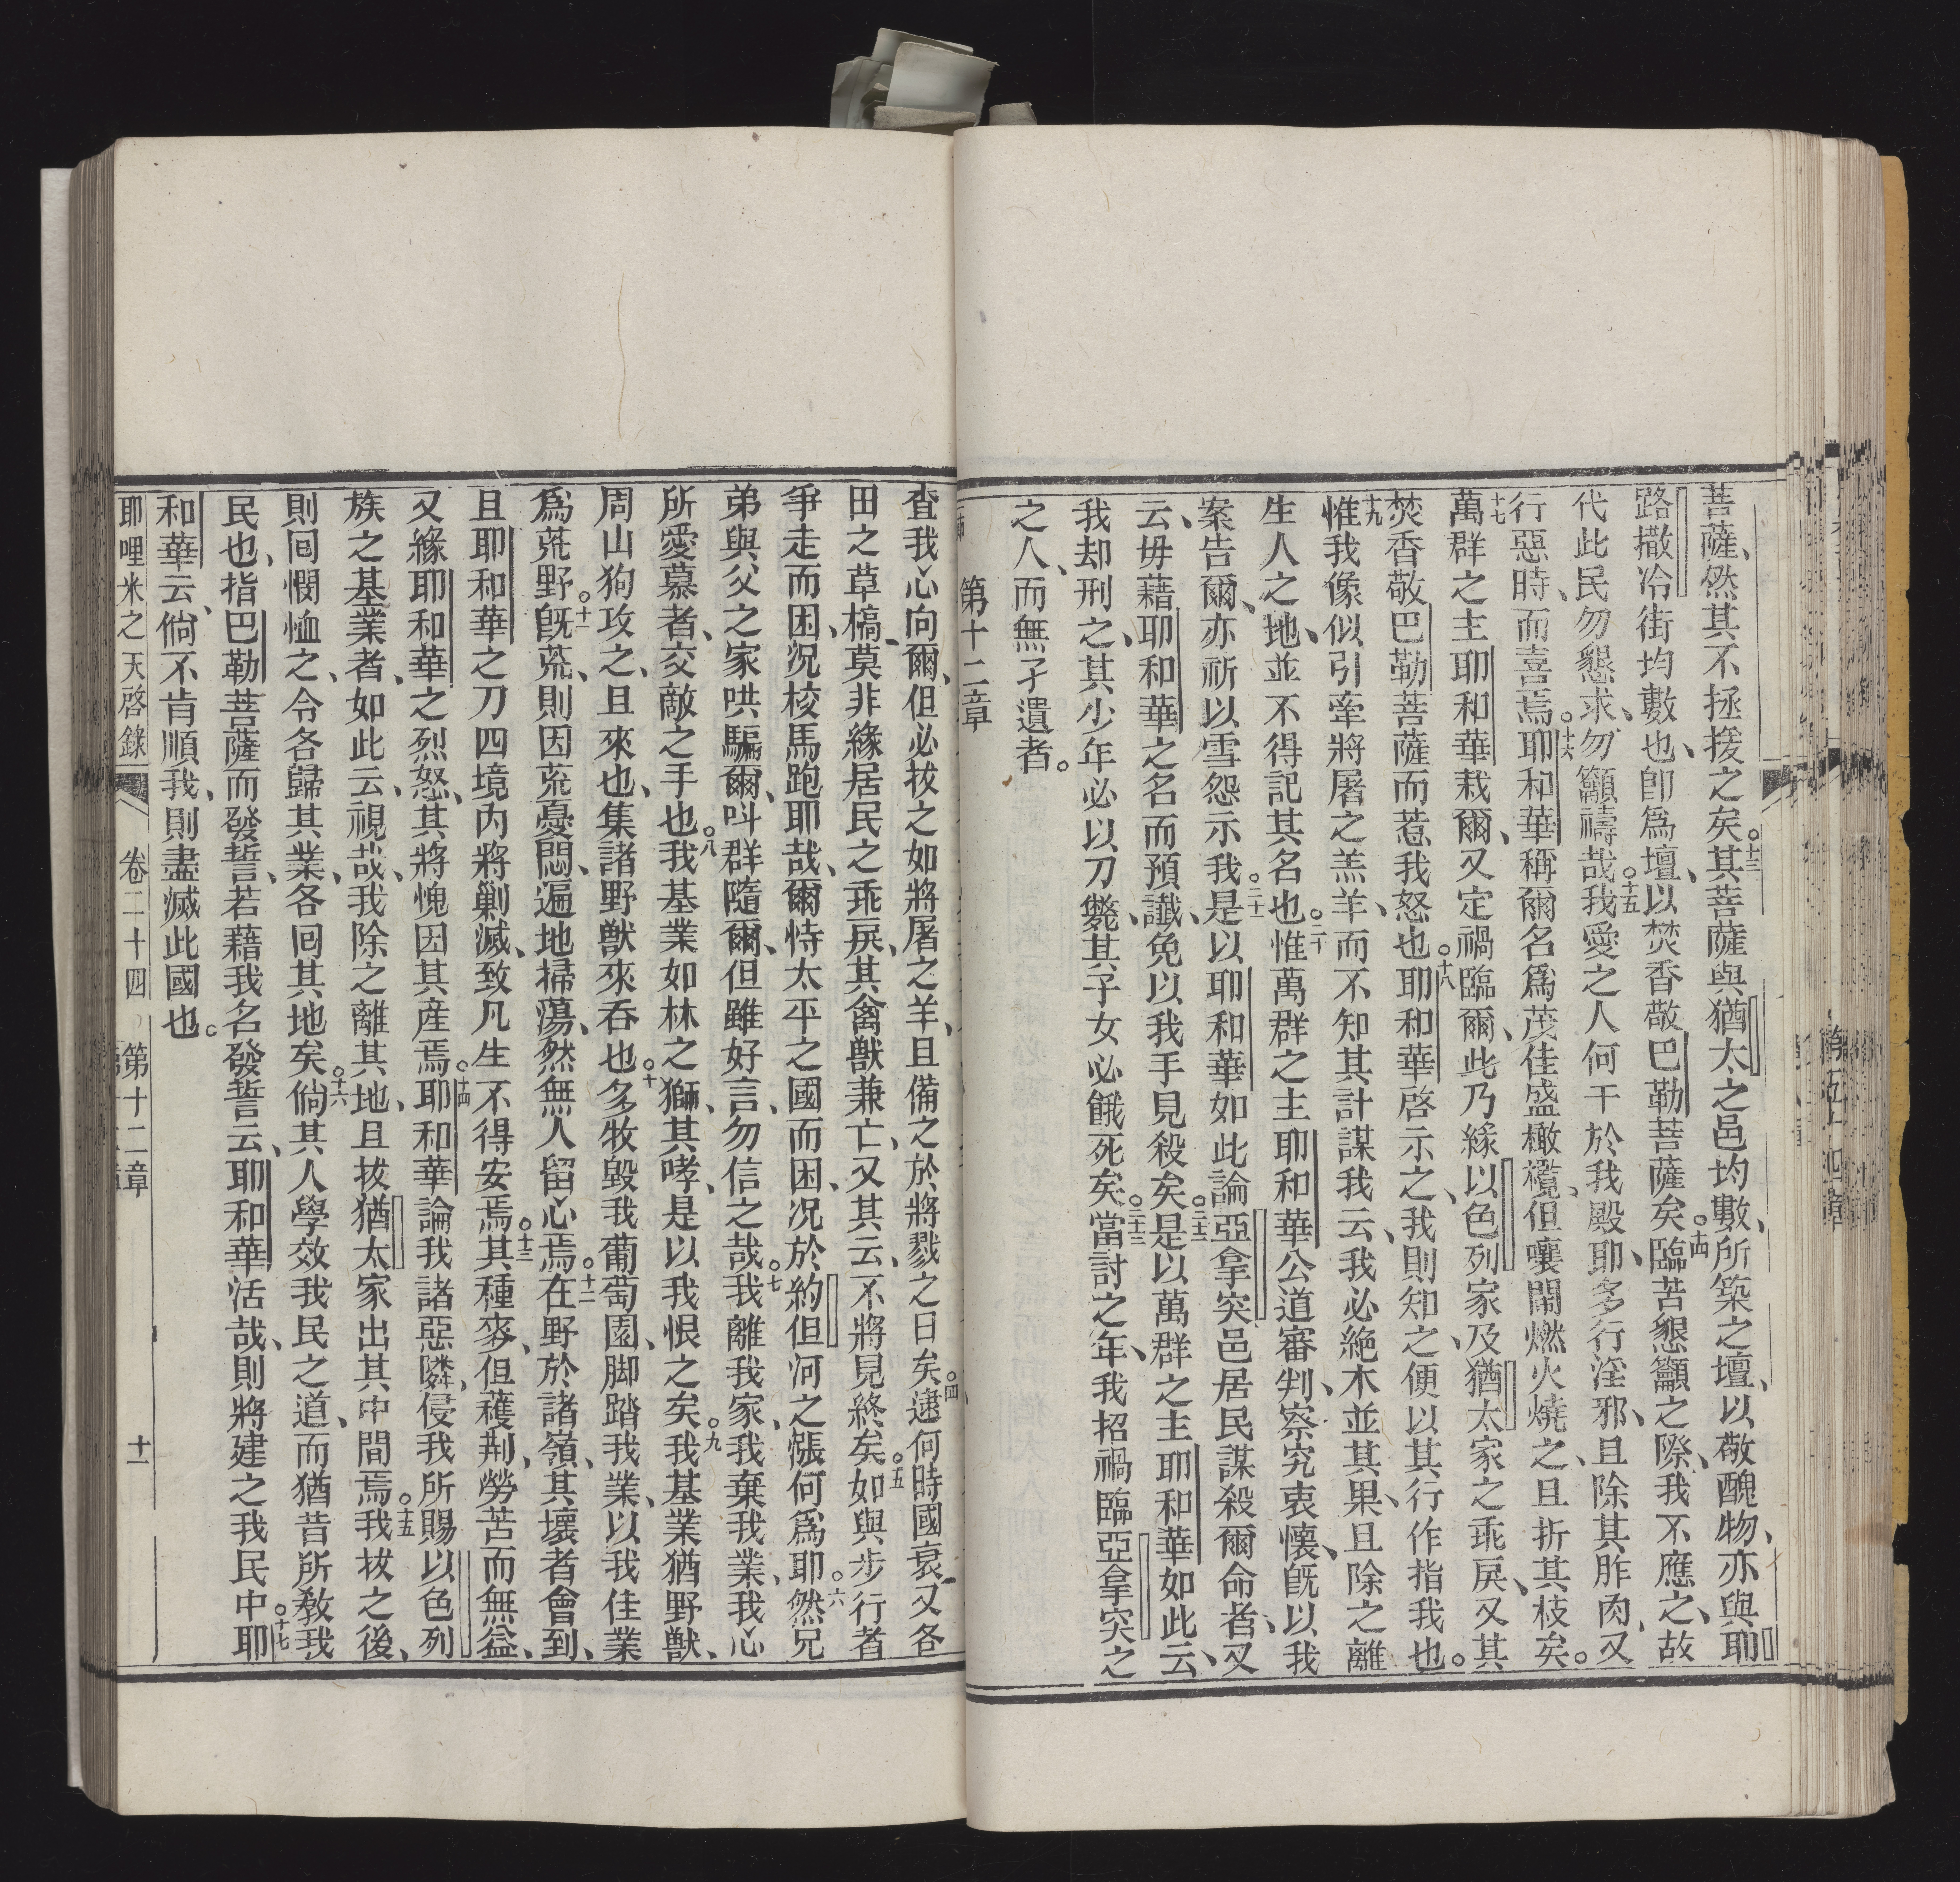 菩薩、然其不拯援之矣。十三其菩薩與猶太之邑均數、所築之壇、以敬醜物、亦與耶
路撒冷街均數也、卽爲壇、以焚香敬巴勒菩薩矣。十四臨苦懇籲之際、我不應之、故
代此民勿懇求、勿籲禱哉。十五我愛之人何干於我殿耶、多行淫邪、且除其胙肉、又
行惡時、而喜焉。十六耶和華稱爾名爲茂佳盛橄欖、但嚷鬧燃火燒之、且折其枝矣。
十七萬群之主耶和華栽爾、又定禍臨爾、此乃緣以色列家及猶太家之乖戾、又其
焚香敬巴勒菩薩而惹我怒也。十八耶和華啓示之、我則知之、便以其行作指我也。
十九惟我像似引牽將屠之羔羊、而不知其計謀我云、我必絶木並其果、且除之離
生人之地、並不得記其名也。二十惟萬群之主耶和華公道審判、察究衷懷、旣以我
案告爾、亦祈以雪怨示我。二十一是以耶和華如此論亞拿突邑居民謀殺爾命者、又
云、毋藉耶和華之名而預讖、免以我手見殺矣。二十二是以萬群之主耶和華如此云、
我却刑之、其少年必以刀斃、其子女必餓死矣。二十三當討之年、我招禍臨亞拿突之
之人、而無孑遺者。
第十二章
查我心向爾、但必拔之如將屠之羊、且備之於將戮之日矣。四逮何時國衰、又各
田之草槁、莫非緣居民之乖戾、其禽獸兼亡、又其云、不將見終矣。五如與步行者
爭走而困、況棱馬跑耶哉、爾恃太平之國而困、況於約但河之漲何爲耶。六然兄
弟與父之家哄騙爾、呌群隨爾、但雖好言、勿信之哉。七我離我家、我棄我業、我心
所愛慕者、交敵之手也。八我基業如林之獅、其哮、是以我恨之矣。九我基業猶野獸、
周山狗攻之、且來也、集諸野獸來吞也。十多牧毀我葡萄園、脚踏我業、以我佳業
爲荒野。十一旣荒、則因荒憂悶、遍地掃蕩、然無人留心焉。十二在野於諸嶺、其壞者會到、
且耶和華之刀四境内將剿滅、致凡生不得安焉。十三其種麥、但穫荆、勞苦而無益、
又緣耶和華之烈怒、其將愧因其産焉。十四耶和華論我諸惡隣、侵我所賜以色列
族之基業者、如此云、視哉、我除之離其地、且拔猶太家出其中間焉。十五我拔之後、
則囘憫恤之、令各歸其業、各囘其地矣。十六倘其人學效我民之道、而猶昔所敎我
民也、指巴勒菩薩而發誓、若藉我名發誓云、耶和華活哉、則將建之我民中。十七耶
和華云、倘不肯順我、則盡滅此國也。
耶哩米之天啓錄 卷二十四 第十二章 十一